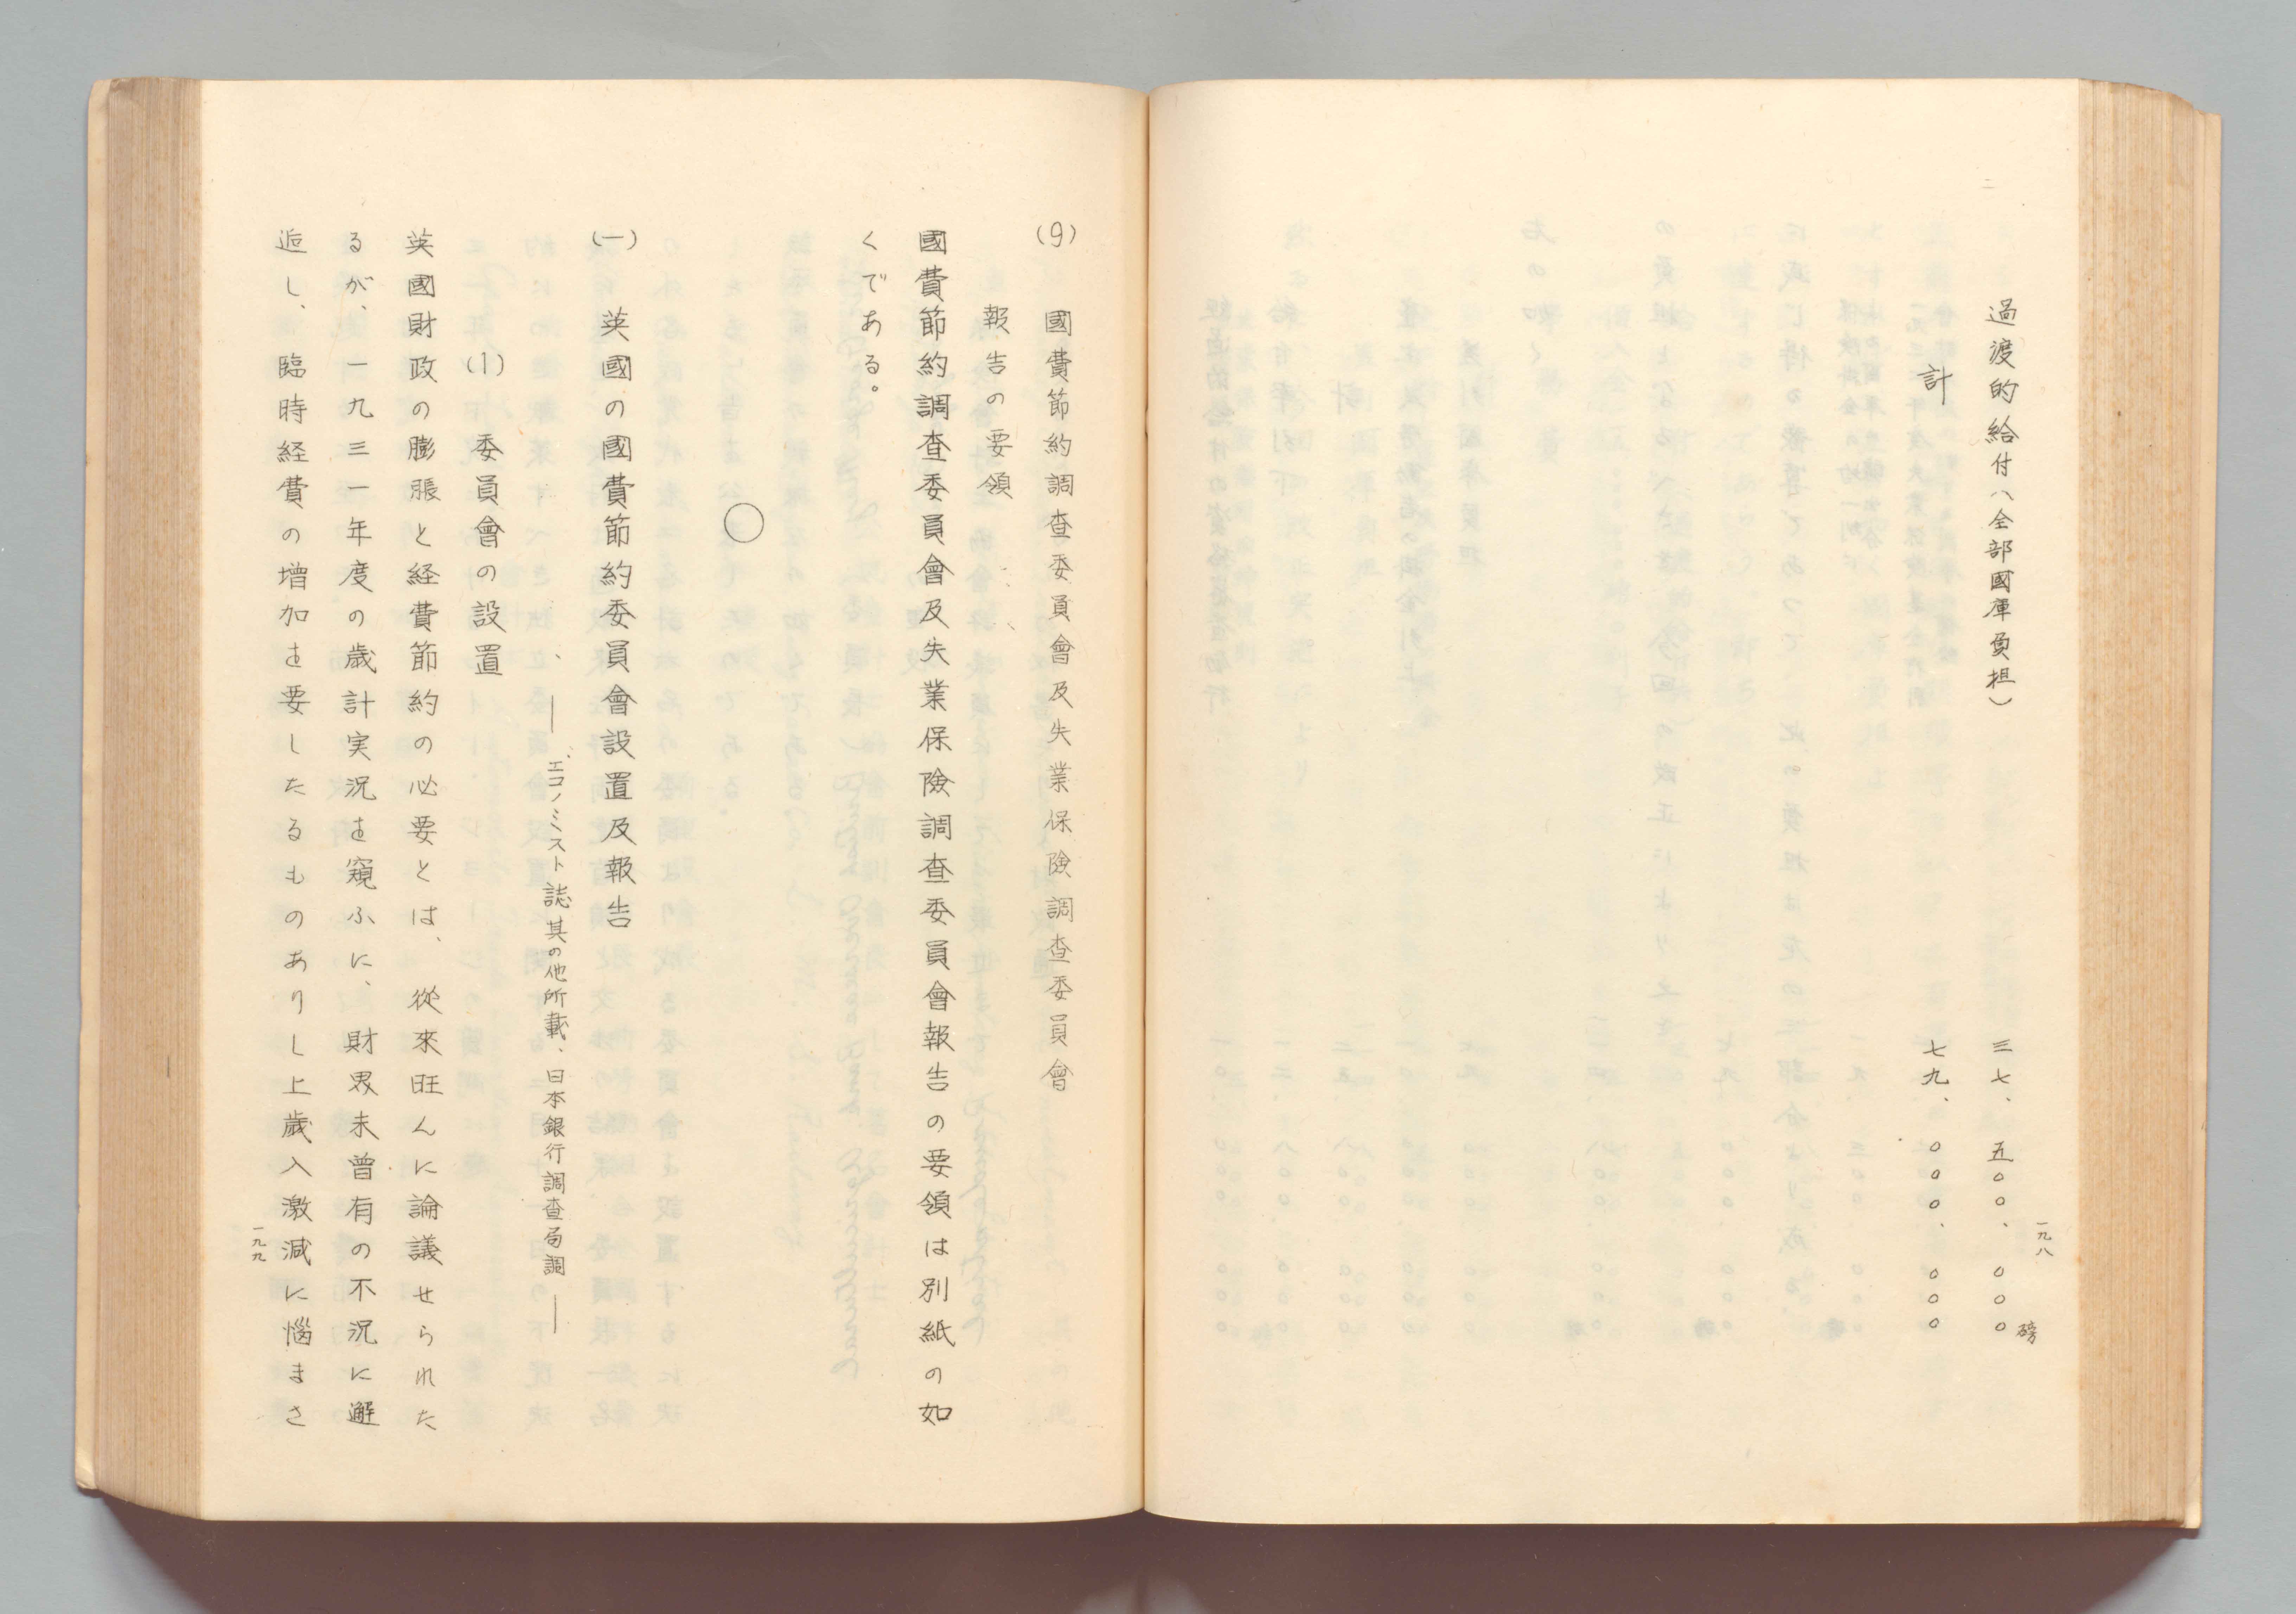 一九八
磅
過渡的給付（全部國庫負担） 三七、五〇〇、〇〇〇
計 七九、〇〇〇、〇〇〇
(9) 國費節約調査委員會及失業保險調査委員會
報告の要領
國費節約調査委員會及失業保險調査委員會報告の要領は別紙の如
くである。
〇
(一) 英國の國費節約委員會設置及報告
―― エコノミスト誌其の他所載、日本銀行調査局調 ――
(1) 委員會の設置
英國財政の膨脹と経費節約の必要とは、從來旺んに論議せられた
るが、一九三一年度の歳計実況を窺ふに、財界未曾有の不況に邂
逅し、臨時経費の増加を要したるものありし上歳入激減に惱まさ
一九九